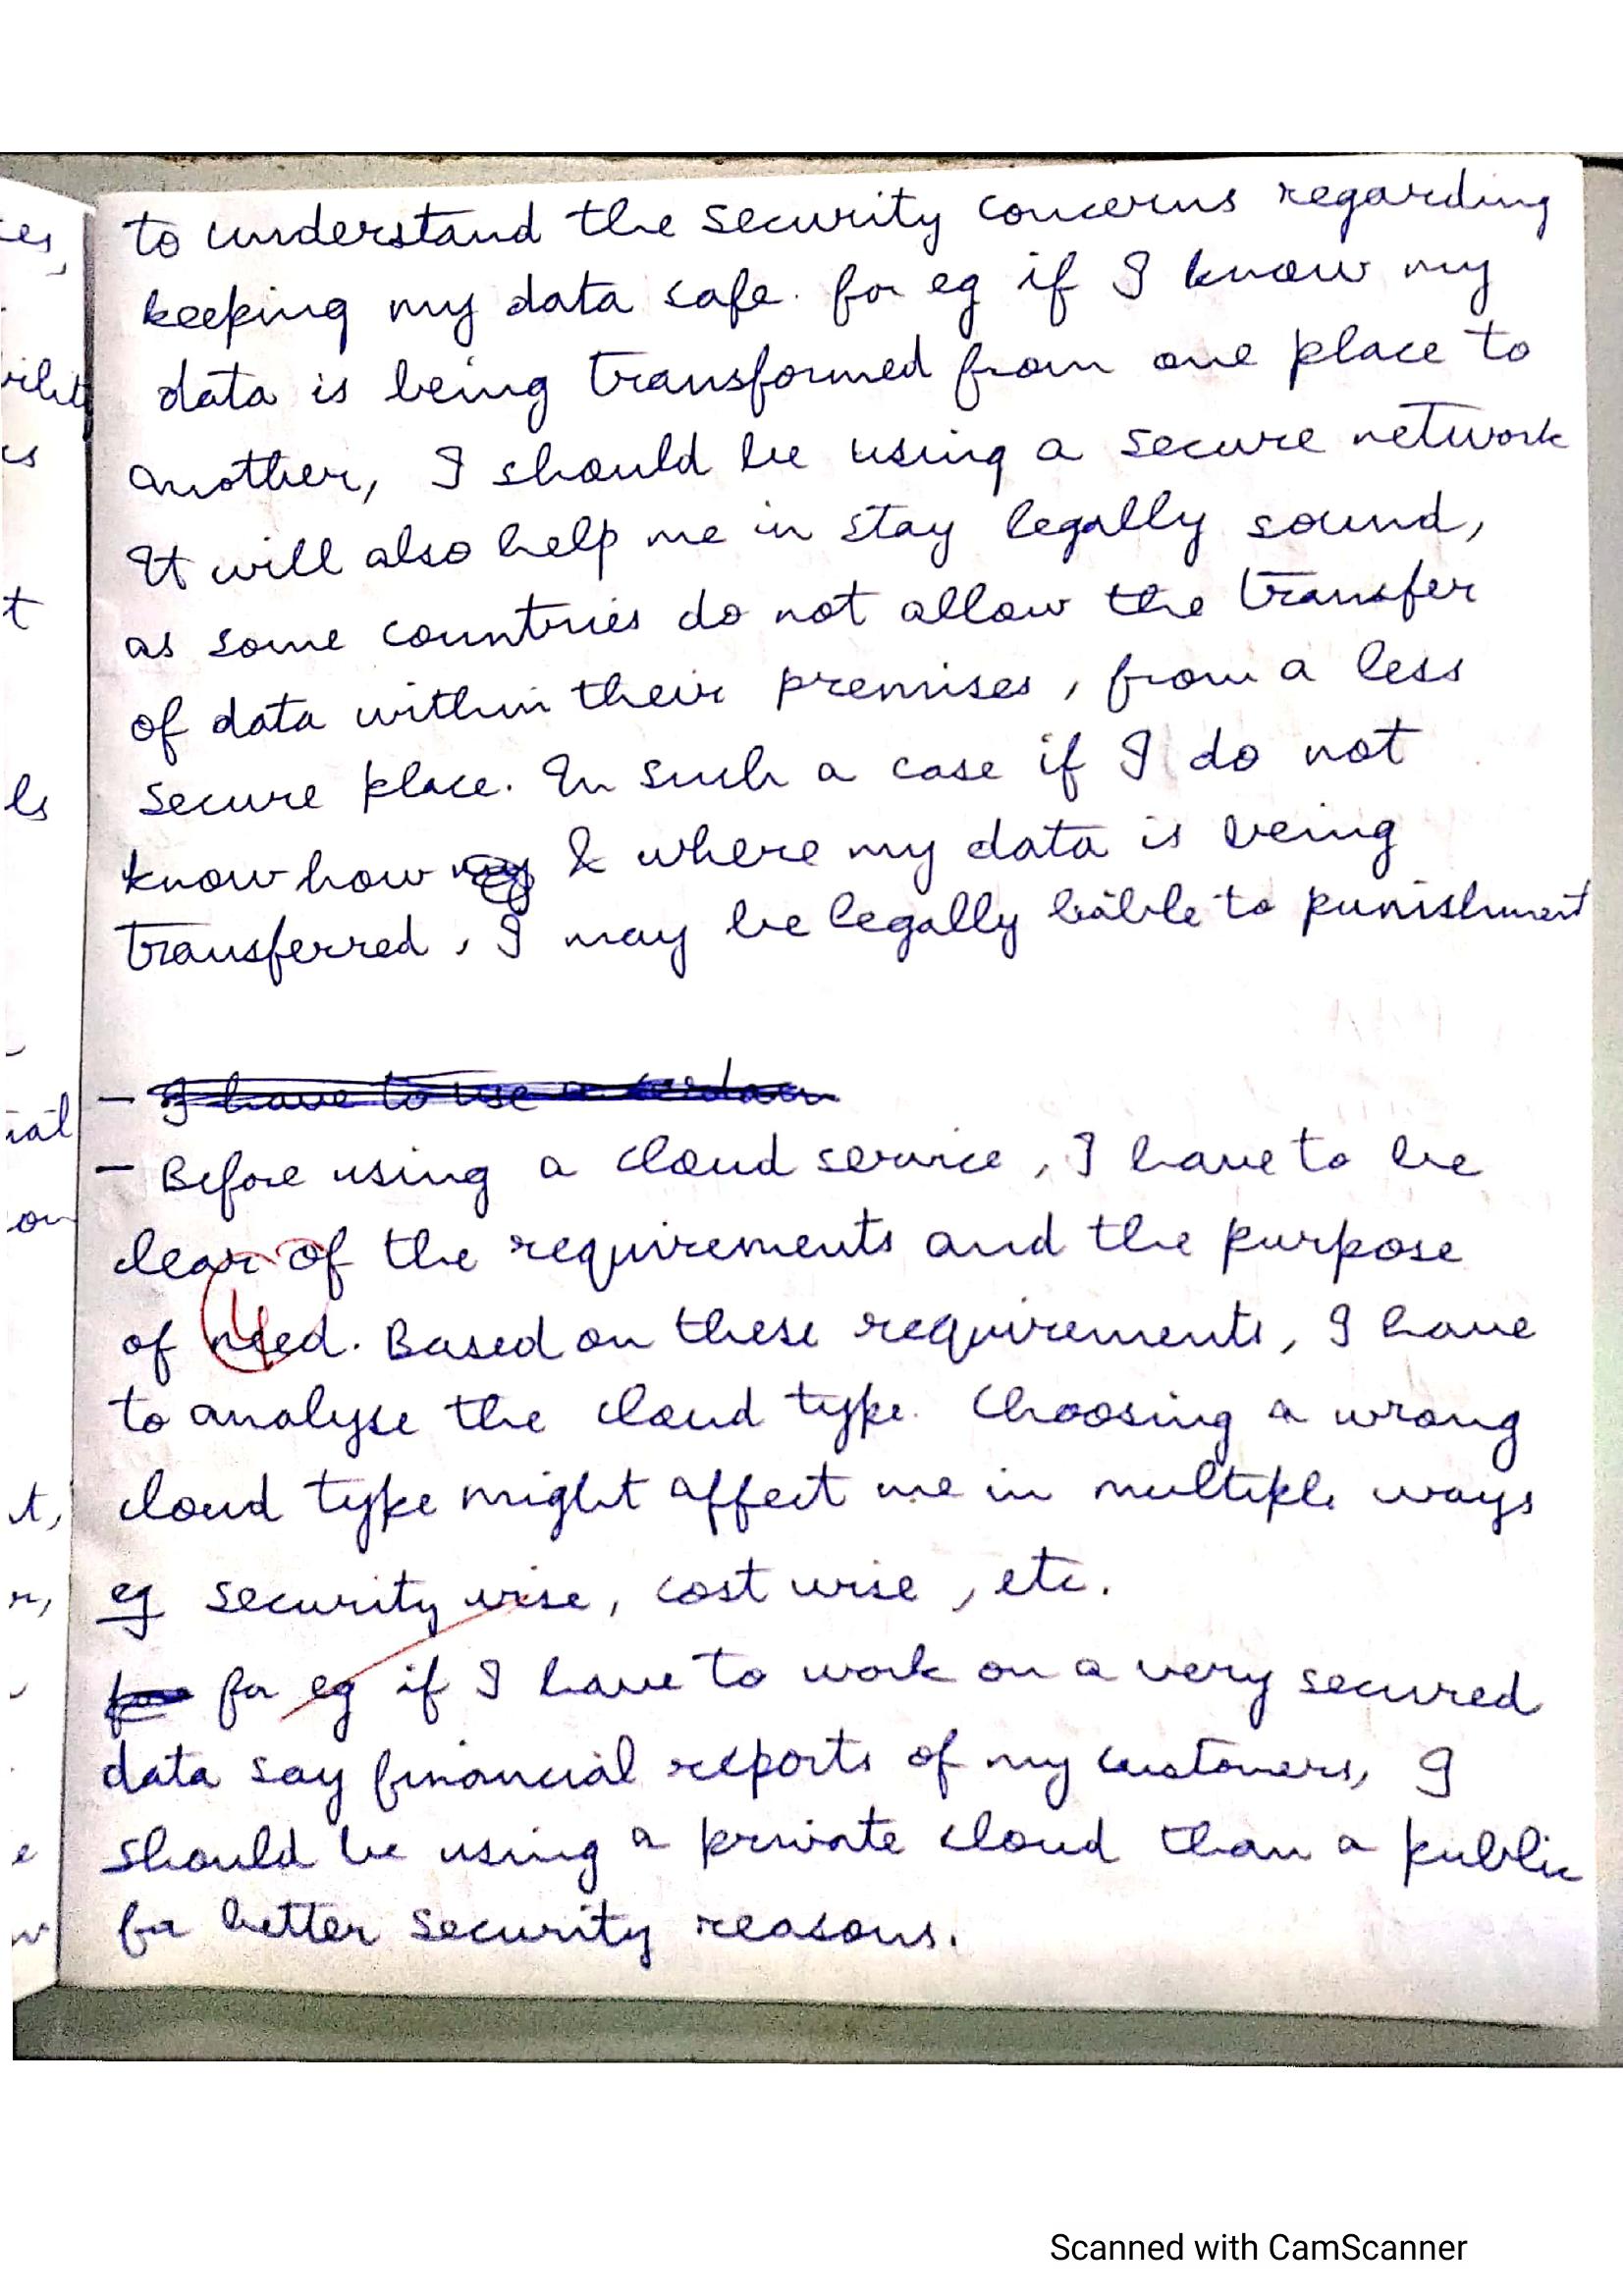 to understand the security concerns regarding
keeping my data safe. for eg if I know my
data is being transformed from one place to
another, I should be using a secure network
It will also help me in stay legally sound,
as some countries do not allow the transfer
of data within their premises, from a less
secure place. In such a case if I do not
know how & where my data is being
transferred, I may be legally liable to punishment
- I have to use a
- Before using a cloud service, I have to be
clear of the requirements and the purpose
of need. Based on these requirements, I have
4
to analyse the cloud type. Choosing a wrong
cloud type might affect me in multiple ways
eg security wise, cost wise, etc.
for eg if I have to work on a very secured
data say financial reports of my customers, I
should be using a private cloud than a public
for better security reasons.
Scanned with CamScanner